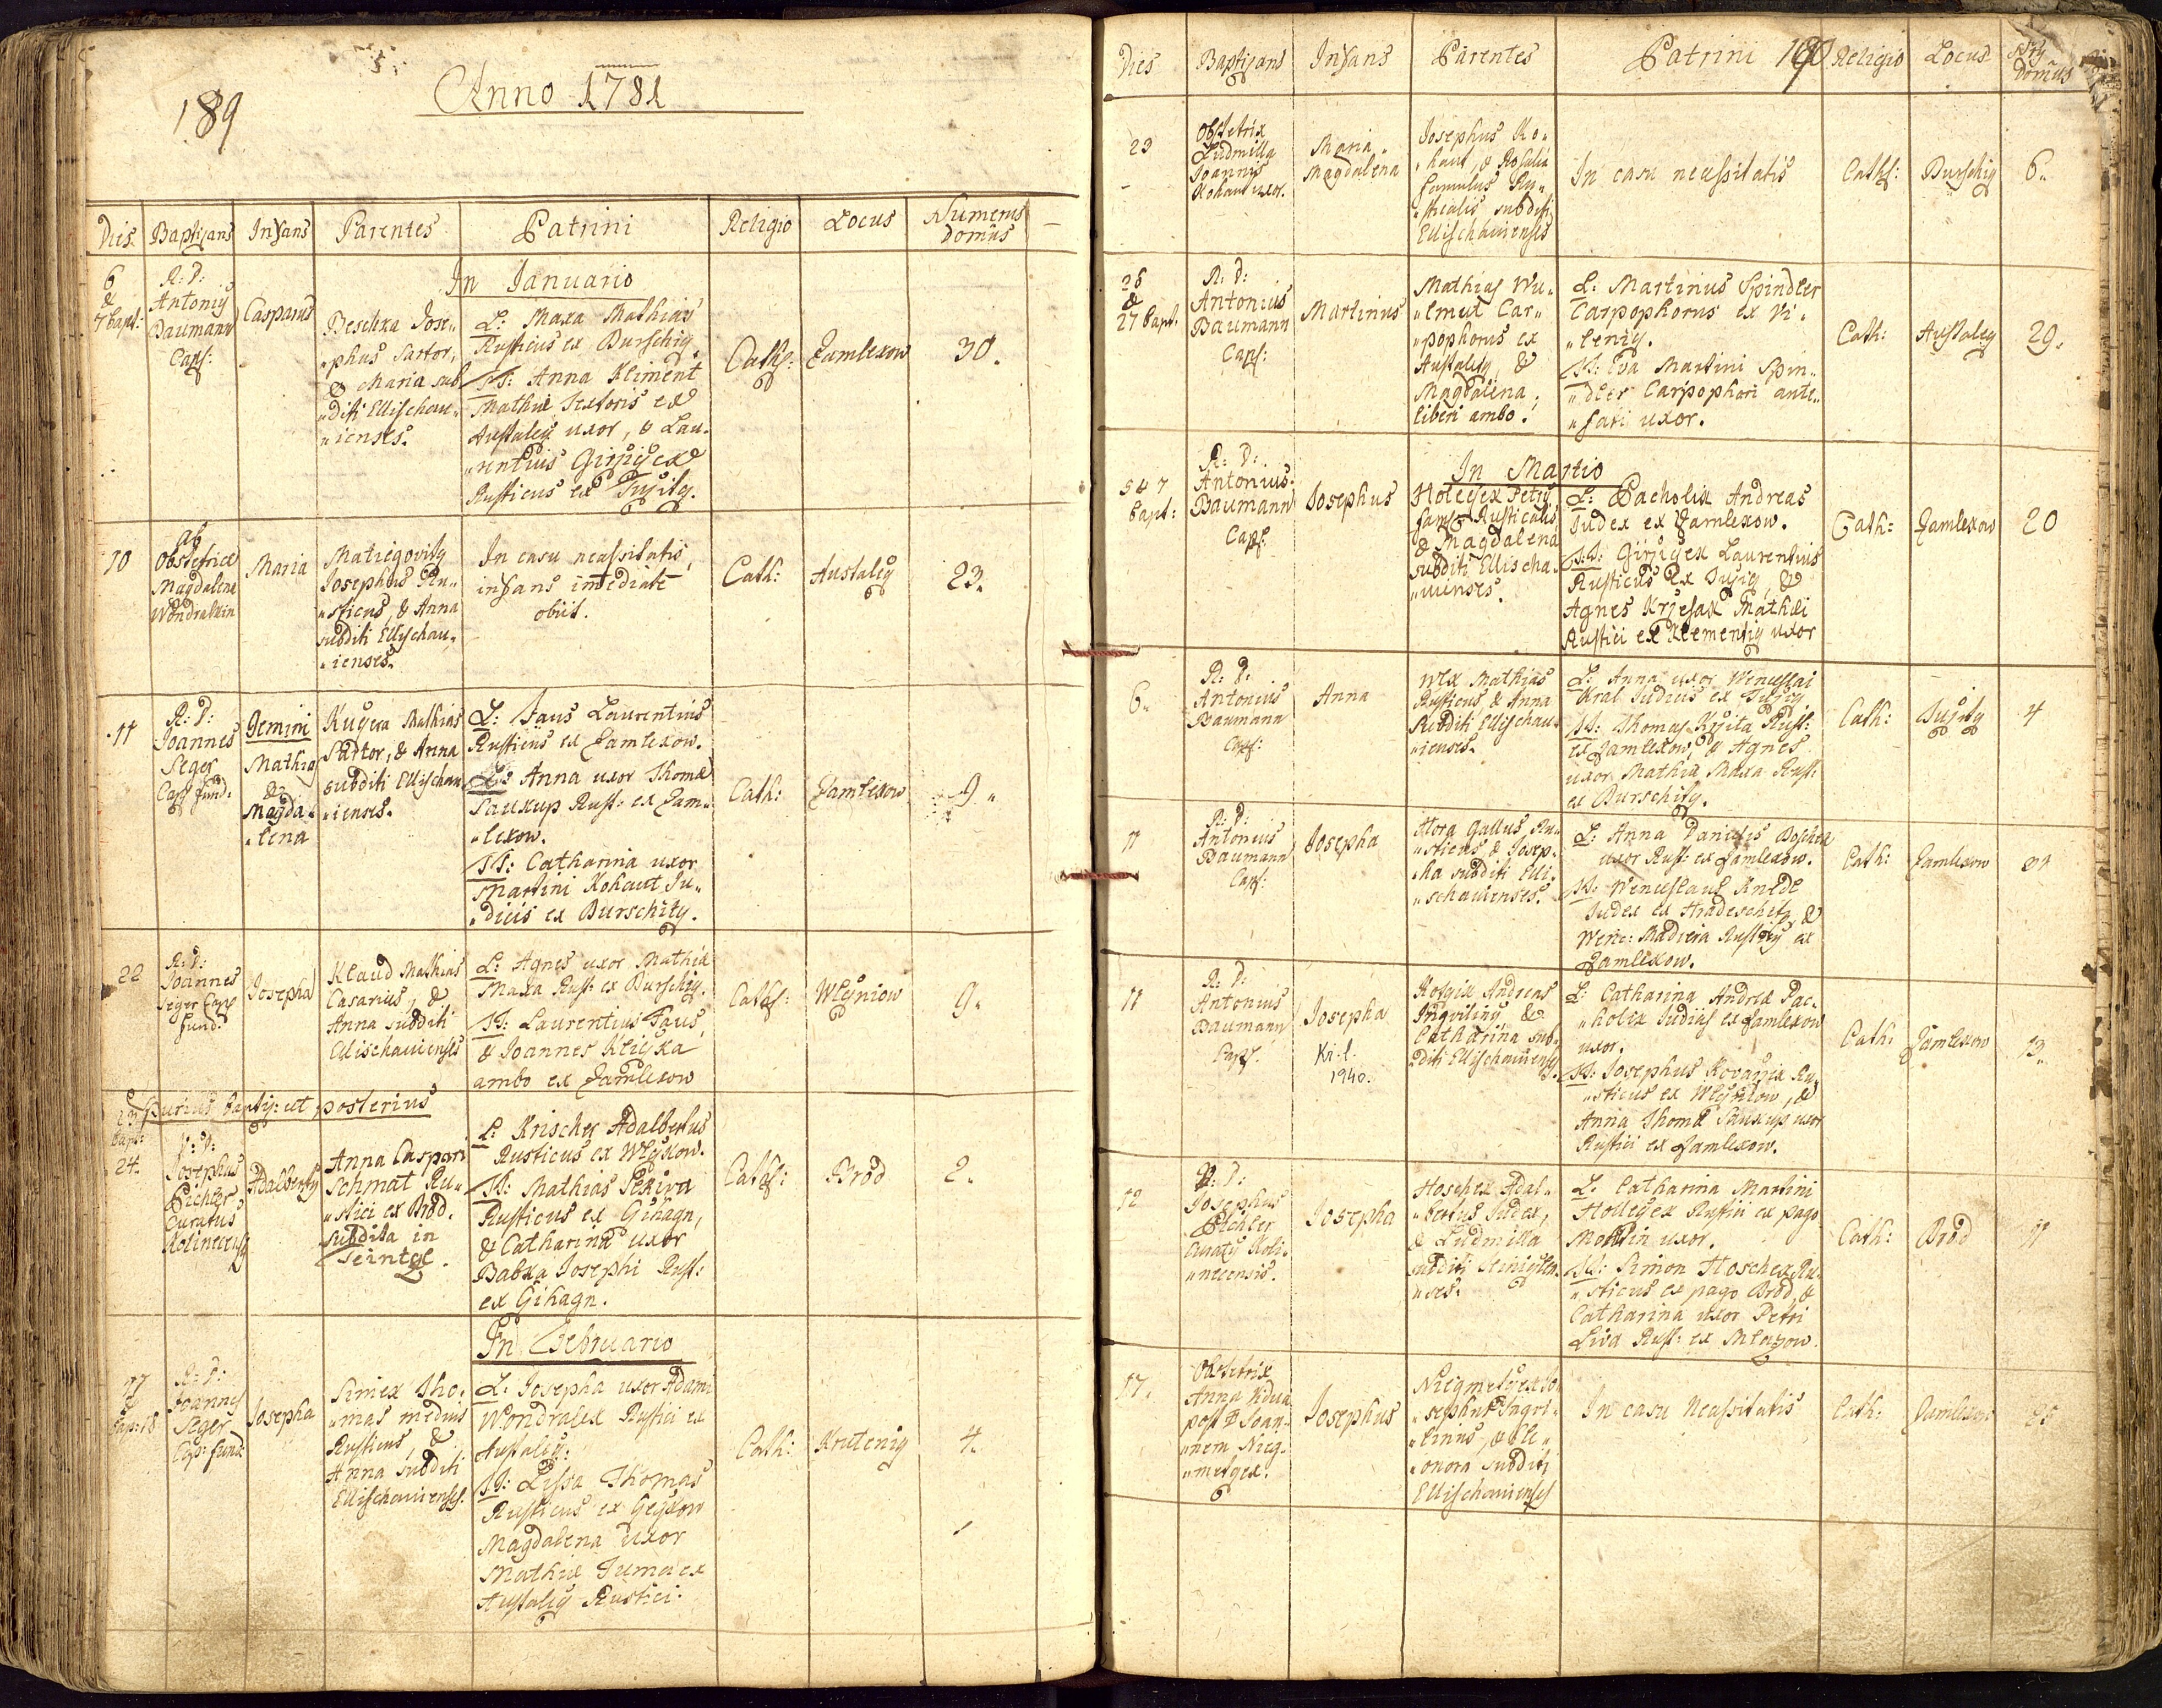 189
Anno 1781
Dies Baptisans Infans Parentes Patrini Religio Locus Numerus Domûs
In Januario
6 & 7 bapt:
R: D:
Antoniy
Baumann
Cap:
Casparus
Beschka Jose„
„phus Sartor,
& Maria sub„
„diti Ellischau„
„ienses.
L: Maxa Mathias
Rusticus ex Burschiz
TT: Anna Kliment
Mathiæ Textoris ex
Austaletz uxor, & Lau„
„rentius
Rusticus ex
Cath:
Zamlekow
30.
10
ab
Obstetrice
Magdalena
Wondralkin
Maria
Josephus Ru„
„sticus, & Anna
subditi Ellischau„
„ienses.
In casu necessitatis,
infans immediate
obiit.
Cath:
Austaletz
23.
11
R: D:
Joannes
Seger
Cap fund:
Gemini
Mathias
&
Magda„
„lena
Kugera Mathias
Sartor, & Anna
subditi Ellischau
„ienses.
L: Faus Laurentius
Rusticus ex Zamlekow.
L: Anna uxor Thomæ
Saukup Rust: ex Zam„
„lekow.
TT: Catharina uxor
Martini Kohout Ju„
„dicis ex Burschitz.
Cath:
Zamlekow
9„
22
R: D:
Joannes
Seger Cap
fund:
Josepha
Klaud Mathias
Casarius, &
Anna subditi
Elischauienses
L: Agnes uxor Mathiæ
Maxa Rust: ex Burschiz.
TT: Laurentius Faus,
& Joannes
ambo ex Zamlekow
Cath:
Wlczniow
9.
Spurius baptiz: ut posterius
23
bapt:
24.
P: D:
Josephus
Pichler
Curatus
Kolinecensis
Adalbertus
Anna Caspari
Schmat Ru„
„stici ex Brod.
subdita in
L: Krischek Adalbertus
Rusticus ex
TT: Mathias Sekira
Rusticus ex Gihagn,
& Catharina uxor
Babka Josephi Rust:
ex Gihagn.
Cath:
Brod
2.
In Februario
17
&
bap: 18
R: D:
Joannes
Seger
Cap: fund:
Josepha
Simek Tho„
„mas medius
Rusticus, &
Anna subditi
Ellischauienses.
L: Josepha uxor Adami
Wondralek Rustici ex
Austaletz.
TT: Lissa Thomas
Rusticus ex
Magdalena uxor
Mathiæ Tuma ex
Austaletz Rustici.
Cath:
Krutenitz
4.
Dies Baptisans Infans Parentes Patrini 190 Religio Locus Domûs
23
Obstetrix
Ludmilla
Joannis
Kohaut uxor.
Maria„
Magdalena
Josephus Ko„
„haut, & Rosalia
famulus Ru„
„sticalis subditi
Ellischauienses
In casu necessitatis
Cath:
Burschiz
6.
26
&
27 bapt.
R: D:
Antonius
Baumann
Cap:
Martinus
Mathias Wu„
Car„
„pophorus ex
Austaletz, &
Magdalena,
liberi ambo.
L: Martinus Spindler
Carpophorus ex Vi„
„lenitz.
TT: Eva Martini Spin„
„dler Carpophori ante„
„fati uxor.
Cath:
Austaletz
29.
In Martio
5 & 7
bapt:
R: D:
Antonius
Baumann
Cap:
Josephus
Holeczek Petrus
fam: Rusticalis
& Magdalena
subditi Ellischa„
„uienses.
L: Pacholik Andreas
Judex ex Zamlekow.
TT: Girziczek Laurentius
Rusticus ex &
Agnes Krzesak Mathæi
Rustici ex Klementitz uxor
Cath:
Zamlekow
20
6„
R: D:
Antonius
Baumann
Cap:
Anna
Wlk Mathias
Rusticus & Anna
Subditi Ellischau„
„ienses.
L: Anna uxor Wenceslai
Kral Judicis ex
TT: Thomas Krzita Rust:
ex Zamlekow, & Agnes
uxor Mathiæ Maxa Rust:
ex Burschitz.
Cath:
4
11
R: D:
Antonius
Baumann
Cap:
Josepha
Hora Gallus Ru„
„sticus & Josep„
„ha subditi Elli„
„schauienses.
L: Anna Danielis
uxor Rust: ex Zamlekow.
TT: Wenceslaus Knedl
Judex ex Hradeschitz, &
Wenc: Madiera ex
Zamlekow.
Cath:
Zamlekow
11
R: D:
Antonius
Baumann
Cap:
Josepha
Kř. l.
1940.
Andreas
Inquilinus &
Catharina sub„
diti Ellischauienses.
L: Catharina Andreæ Pac„
„holik Judicis ex Zamlekow
uxor.
TT: Josephus Kovarzik Ru„
„sticus ex Wlczniow, &
Anna Thomæ Saukup uxor
Rustici ex Zamlekow.
Cath:
Zamlekow
12
P: D:
Josephus
Pichler
Curatus Koli„
„necensis.
Josepha
Hoschek Adal„
„bertus Judex,
& Ludmilla
subditi
„ses.
L: Catharina Martini
Holeczek Rustici ex pago
uxor.
TT: Simon Hoschek Ru„
„sticus ex pago Brod, &
Catharina uxor Petri
Rust: ex Mlazow.
Cath:
Brod
17.
Obstetrix
Anna vidua
post Joan„
„nem Nieg„
„metzek.
Josephus
Niegmetzek Jo„
„sephus Inqui„
„linus, & Ele„
„onora subditi
Ellischauienses
In casu Necessitatis
Cath:
Zamlekow